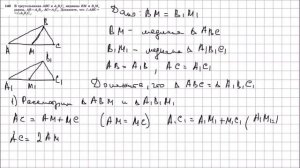 148 В треугольниках ABC и A₁B₁C₁ медианы BM и B₁M₁ равны, AB = A₁B₁, AC = A₁C₁. Докажите, что △ABC = △A₁B₁C₁.
B
A M C
B₁
A₁ M₁ C₁
Дано: BM = B₁M₁
BM - медиана △ABC
B₁M₁ - медиана △A₁B₁C₁
AB = A₁B₁, AC = A₁C₁
Доказать, что △ABC = △A₁B₁C₁
1) Рассмотрим △ABM и △A₁B₁M₁
AC = AM + MC (AM = MC) A₁C₁ = A₁M₁ + M₁C₁ (A₁M₁
AC = 2AM